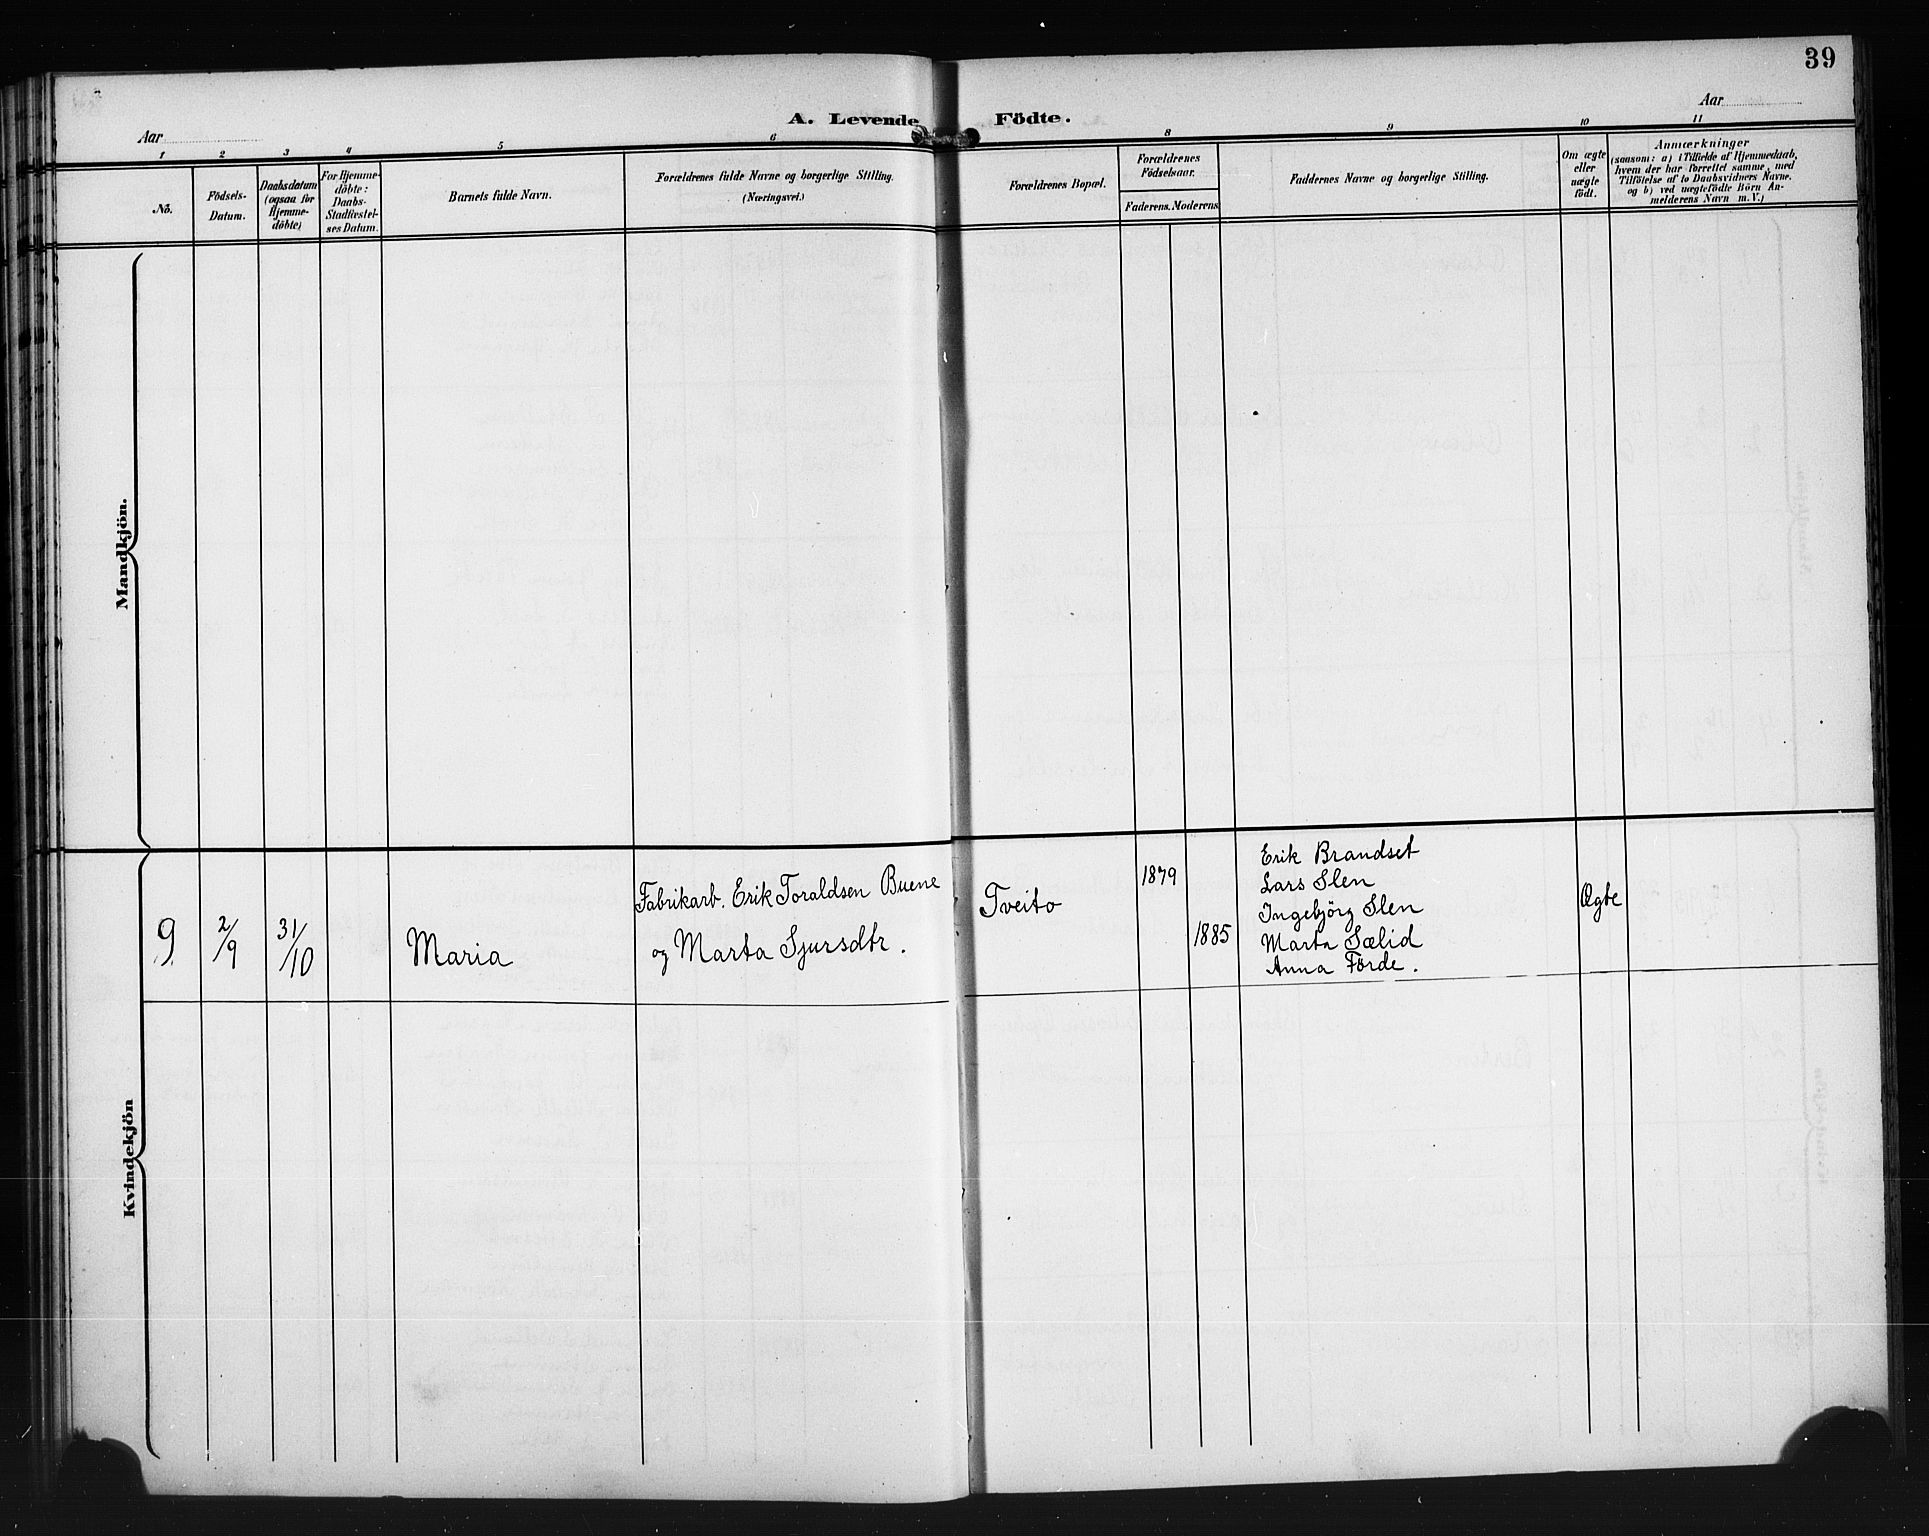 39
A. Levende Födte.
Aar
Aar
1 2 3 4 5 6 8 9 10 11
Nô.
Födsels-
Datum.
Daabsdatum
(ogsaa for
Hjemme-
döbte)
For Hjemme-
döbte:
Daabs-
Stadfæstel-
ses Datum.
Barnets fulde Navn.
Forældrenes fulde Navne og borgerlige Stilling.
(Næringsvei.)
Forældrenes Bopæl.
Forældrenes
Födselsaar.
Faderens. Moderens.
Faddernes Navne og borgerlige Stilling.
Om ægte
eller
uægte
födt.
Anmærkninger
(saasom: a) i Tilfælde af Hjemmedaab,
hvem der har forrettet samme, med
Tilföielse af to Daabsvidners Navne.
og b) ved uægtefödte Börn An-
melderens Navn m. V.)
Mandkjön.
Kvindekjön
9.
2/9
31/10
Maria
Fabrikarb. Erik Toraldsen Buene
og Marta Sjursdtr.
Tveito
1879
1885
Erik Brandset
Lars Slen
Ingebjörg Slen
Marta Sælid
Anna Förde.
Ægte